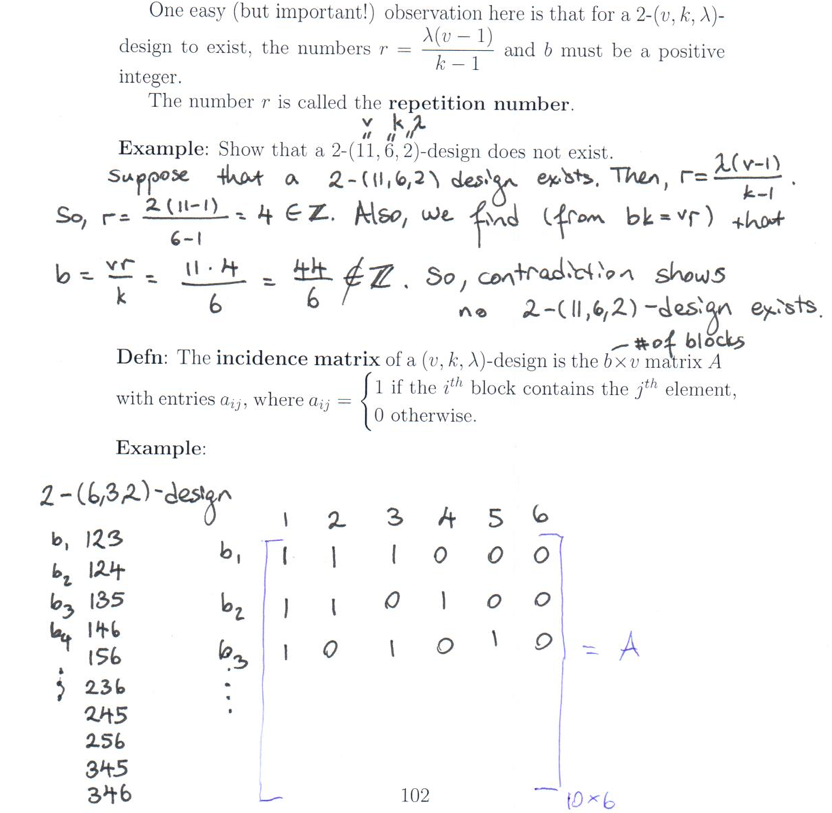 One easy (but important!) observation here is that for a 2-(v, k, λ)-
design to exist, the numbers r = λ(v − 1)/(k − 1) and b must be a positive
integer.
The number r is called the repetition number.
v k, λ
" " "
Example: Show that a 2-(11, 6, 2)-design does not exist.
Suppose that a 2-(11,6,2) design exists. Then, r = λ(v-1)/(k-1).
So, r = 2(11-1)/(6-1) = 4 ∈ ℤ. Also, we find (from bk = vr) that
b = vr/k = 11·4/6 = 44/6 ∉ ℤ. So, contradiction shows
no 2-(11,6,2)-design exists.
# of blocks
Defn: The incidence matrix of a (v, k, λ)-design is the b×v matrix A
with entries aᵢⱼ, where aᵢⱼ = { 1 if the iᵗʰ block contains the jᵗʰ element,
0 otherwise.
Example:
2-(6,32)-design
b₁ 123
b₂ 124
b₃ 135
b₄ 146
156
236
245
256
345
346
1 2 3 4 5 6
b₁ 1 1 1 0 0 0
b₂ 1 1 0 1 0 0
b₃ 1 0 1 0 1 0
⋮
= A
10×6
102